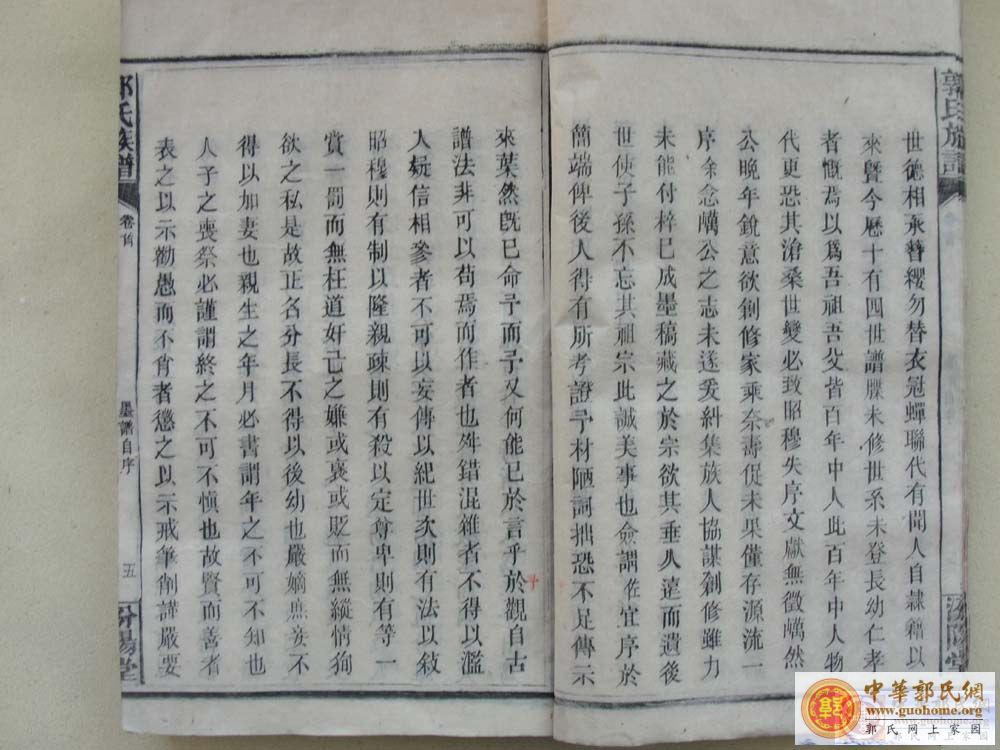 郭氏族譜
世德相承簪纓勿替衣冠蟬聯代有聞人自隸籍以
來暨今歷十有四世譜牒未修世系未登長幼仁孝
者慨焉以爲吾祖吾父皆百年中人此百年中人物
代更恐其滄桑世變必致昭穆失序文獻無徵
然
公晚年銳意欲創修家乘奈壽促未果僅存源流一
序余念
公之志未遂爰糾集族人協謀創修雖力
未能付梓已成墨稿藏之於宗欲其垂久遠而遺後
世使子孫不忘其祖宗此誠美事也僉謂
宜序於
簡端俾後人得有所考證予材陋詞拙恐不足傳示
來葉然旣已命予而予又何能已於言乎於觀自古
譜法非可以苟焉而作者也舛錯混雜者不得以濫
人疑信相參者不可以妄傳以紀世次則有法以敘
昭穆則有制以隆親疎則有殺以定尊卑則有等一
賞一罰而無枉道奸己之嫌或褒或貶而無縱情狥
欲之私是故正名分長不得以後幼也嚴嫡庶妾不
得以加妻也親生之年月必書謂年之不可不知也
人子之喪祭必謹謂終之不可不慎也故賢而善者
表之以示勸愚而不肖者懲之以示戒筆削謹嚴要
郭氏族譜
卷首
墨譜自序
五
汾陽堂
中華郭氏網
www.guohome.org
郭氏網上家園